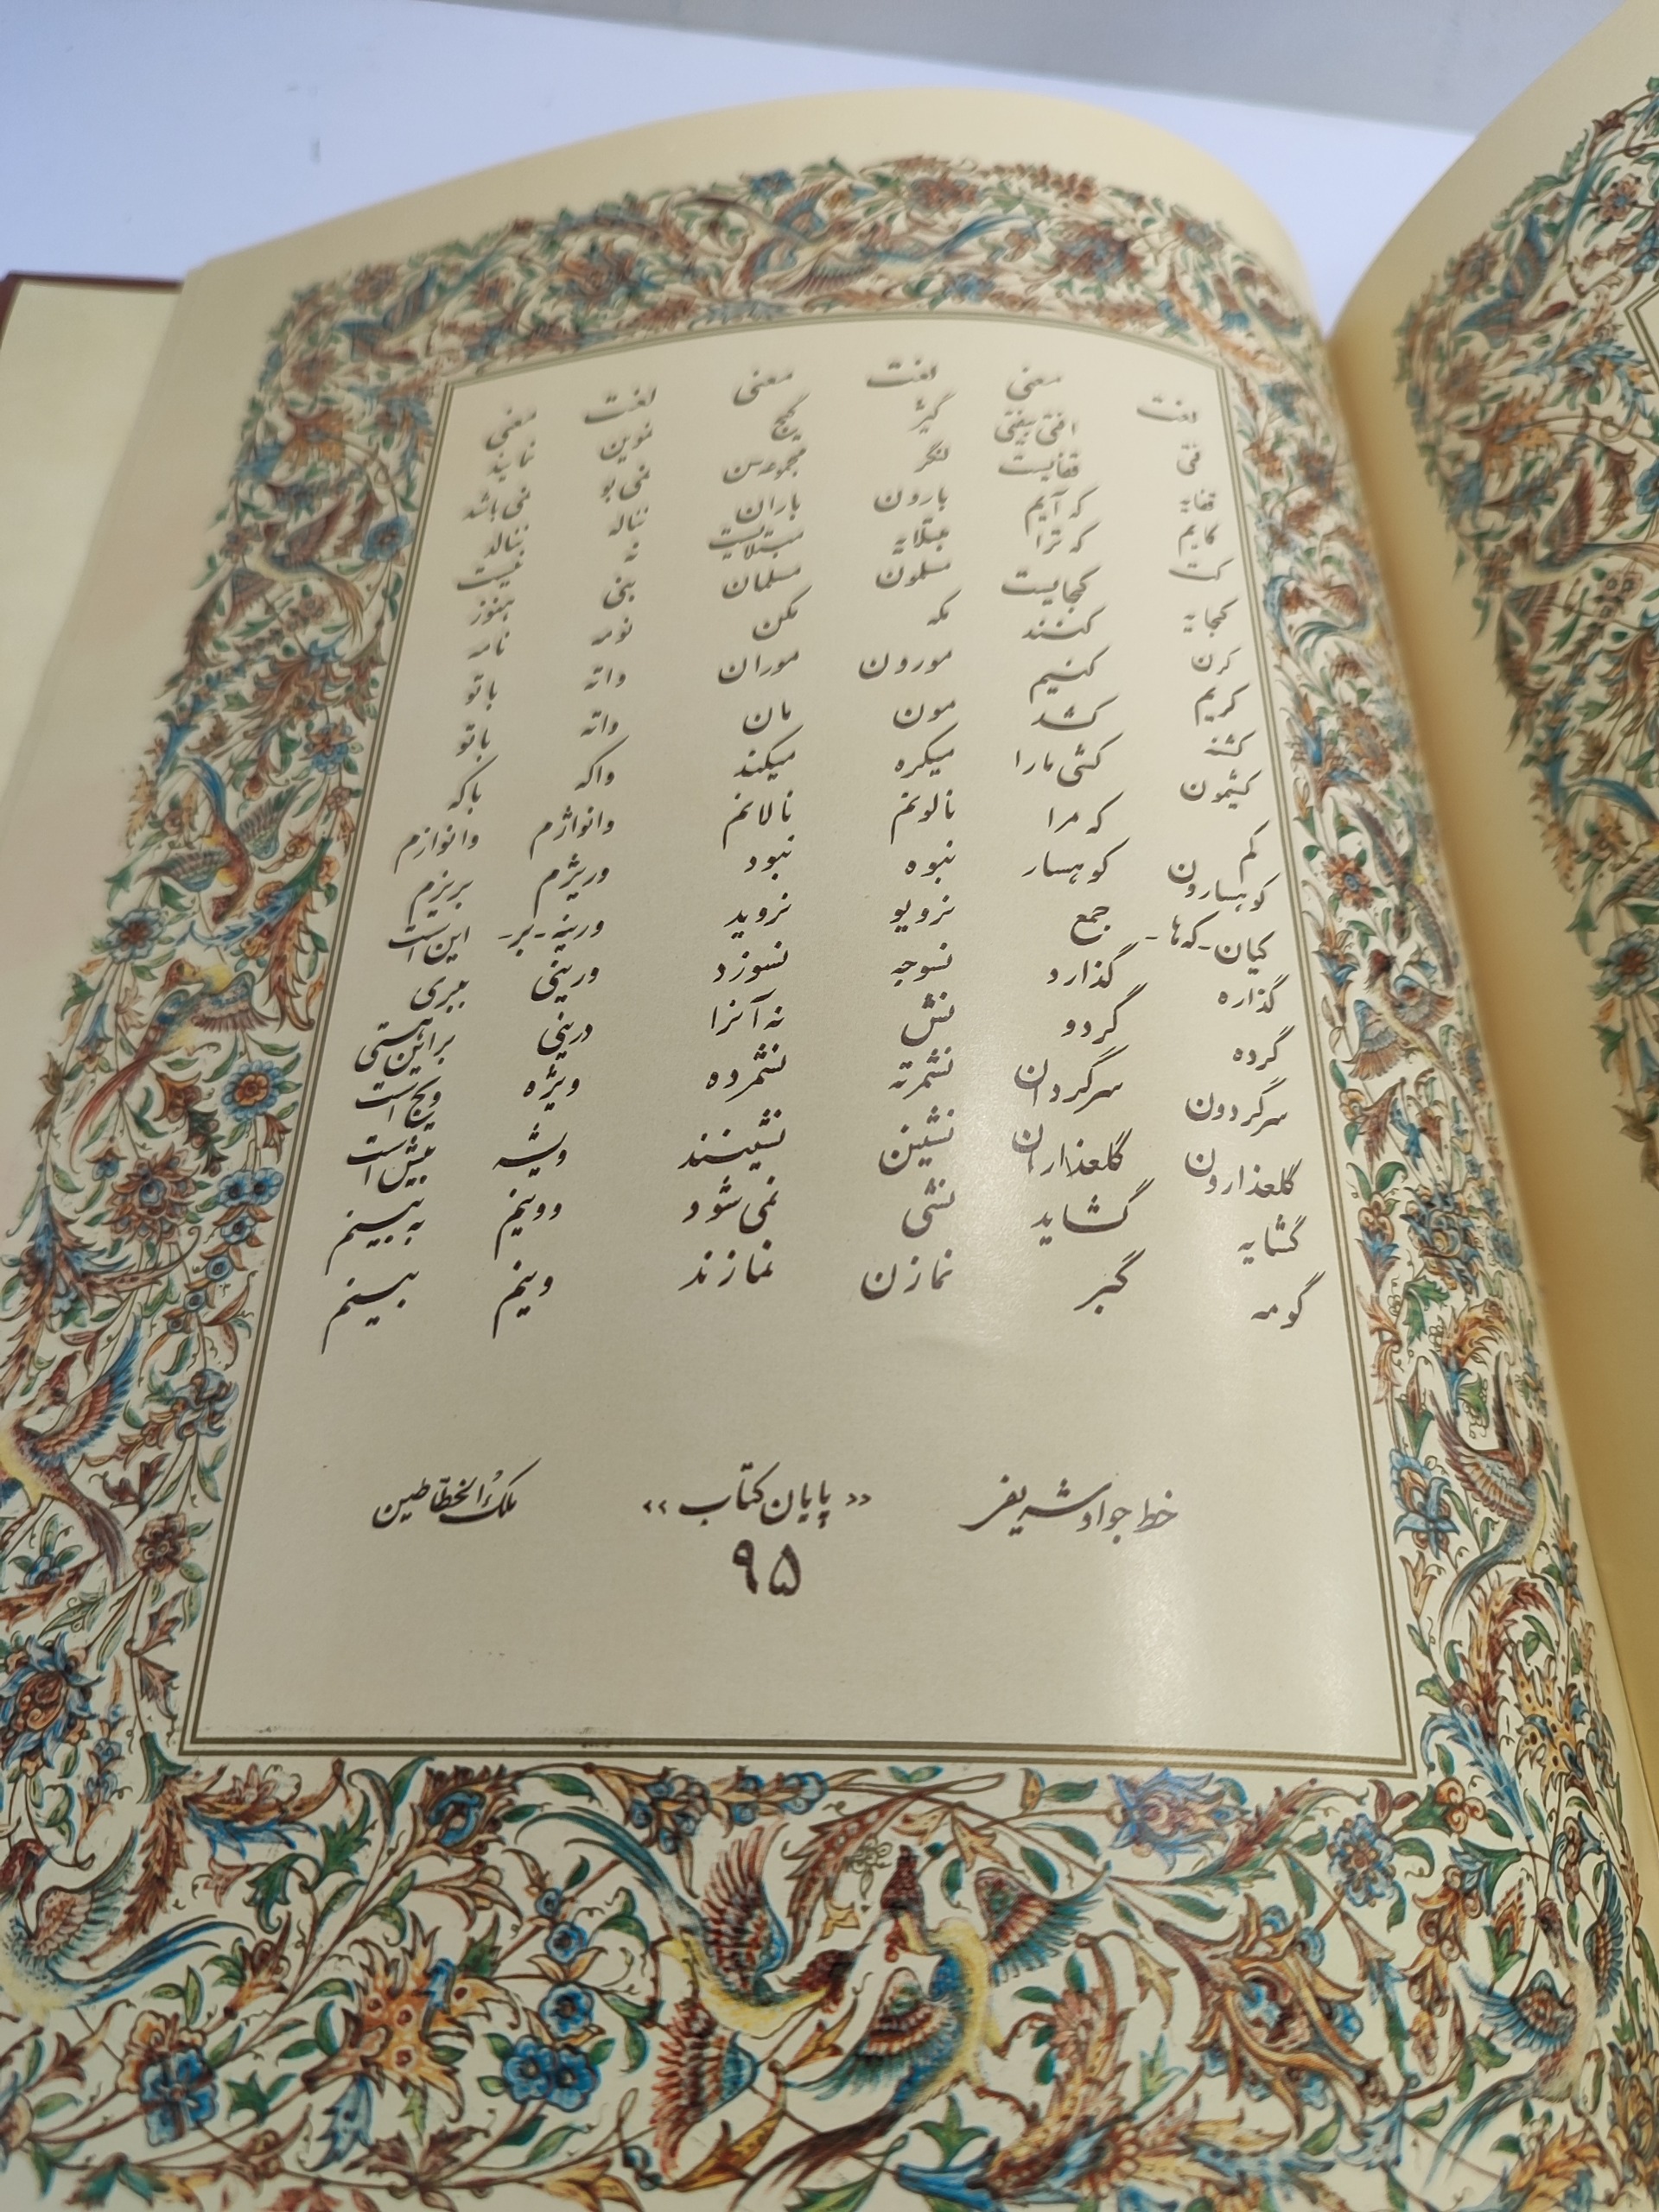 لغت معنی لغت معنی لغت معنی
فتی افتی بیفتی گیژ گیج نموین نمایند
قفایه قفایست لنگر مجموعه‌سن نمی‌بو نمی‌باشد
کایم که آیم بارون باران نناله ننالد
کت که ترا مبتلایه مبتلایست نه نیست
کجایه کجایست مسلمون مسلمان بنی هنوز
کرن کنند مکه مکن نومه نامه
کریم کنیم مورون موران واته باتو
کشه کشد مون مان واته باتو
کشیمون کشی مارا میکره میکند واکه باکه
کم که مرا نالونم نالانم وانواژم وانوازم
کوهسارون کوهسار نبوه نبود وریژم بریزم
کیان-که‌ها- جمع نرویو نروید ورینه-بر- این است
گذاره گذارد نسوجه نسوزد ورینی ببری
گرده گردو نش نه آنرا درینی براین هستی
سرگردون سرگردان نشمرته نشمرده ویژه ویج است
گلعذارون گلعذاران نشینن نشینند ویشه بیش است
گشایه گشاید نشی نمی‌شود ووینم به ببینم
گومه گبر نمازن نمازند وینم ببینم
خط جواد شریفی «پایان کتاب» ملک‌الخطاطین
۹۵